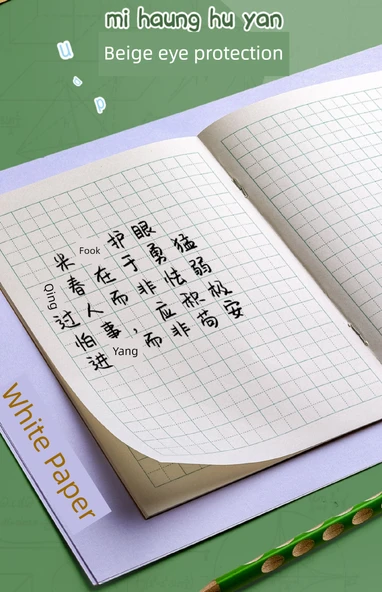 mi haung hu yan
Beige eye protection
U
a
p
米 Fook 护眼
Qing 春在于勇猛
过人而非怯弱
怕事，应积极
进 Yang 而非苟安
White Paper